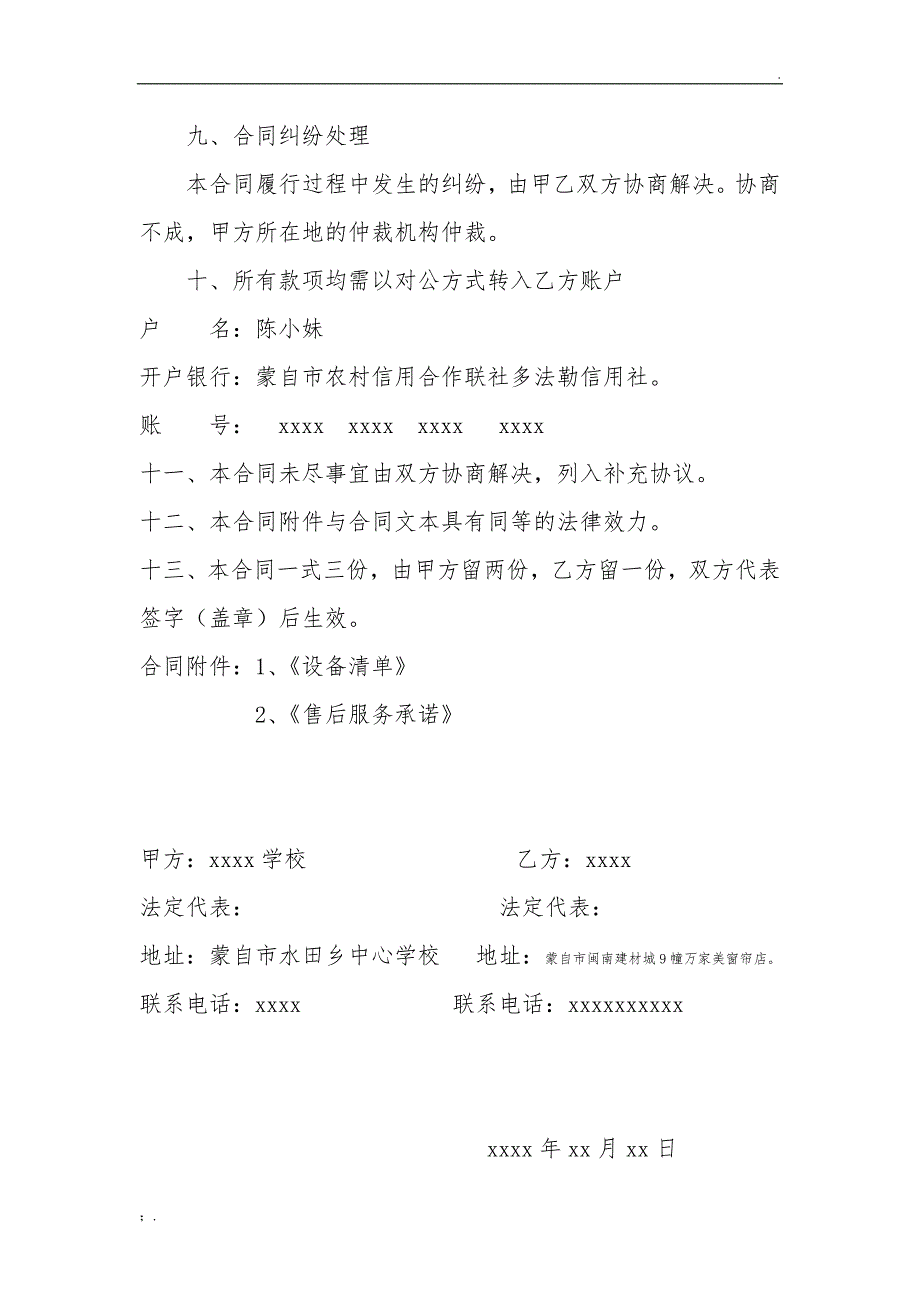 九、合同纠纷处理
本合同履行过程中发生的纠纷，由甲乙双方协商解决。协商
不成，甲方所在地的仲裁机构仲裁。
十、所有款项均需以对公方式转入乙方账户
户　　名：陈小妹
开户银行：蒙自市农村信用合作联社多法勒信用社。
账　　号：　xxxx  xxxx  xxxx   xxxx
十一、本合同未尽事宜由双方协商解决，列入补充协议。
十二、本合同附件与合同文本具有同等的法律效力。
十三、本合同一式三份，由甲方留两份，乙方留一份，双方代表
签字（盖章）后生效。
合同附件：1、《设备清单》
2、《售后服务承诺》
甲方：xxxx 学校　　乙方：xxxx
法定代表：　　法定代表：
地址：蒙自市水田乡中心学校　地址：蒙自市闽南建材城9幢万家美窗帘店。
联系电话：xxxx　　联系电话：xxxxxxxxxx
xxxx 年 xx 月 xx 日
; .